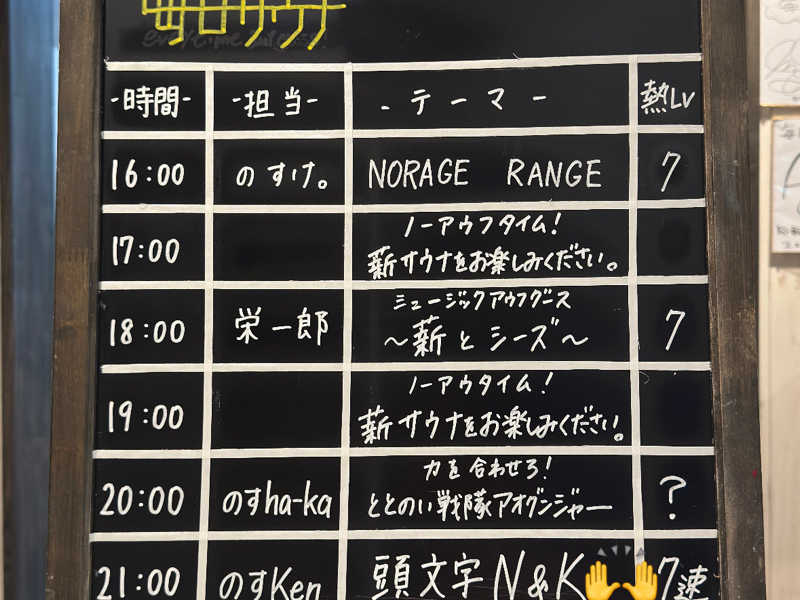 毎日サウナ
-時間- -担当- -テーマ- 熱Lv
16:00 のすけ。 NORAGE RANGE 7
17:00 ノーアウフタイム!
薪サウナをお楽しみください。
18:00 栄一郎 ミュージックアウフグース
〜薪とシーズ〜 7
19:00 ノーアウタイム!
薪サウナをお楽しみください。
20:00 のすha-ka 力を合わせろ!
ととのい戦隊アオグンジャー ?
21:00 のすKen 頭文字N&K🙌 7速